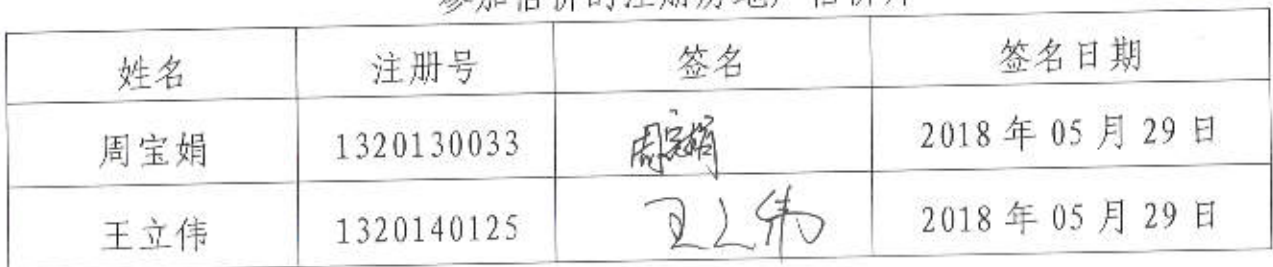 参加估价的注册房地产估价师
姓名 注册号 签名 签名日期
周宝娟 1320130033 周宝娟 2018 年 05 月 29 日
王立伟 1320140125 王立伟 2018 年 05 月 29 日